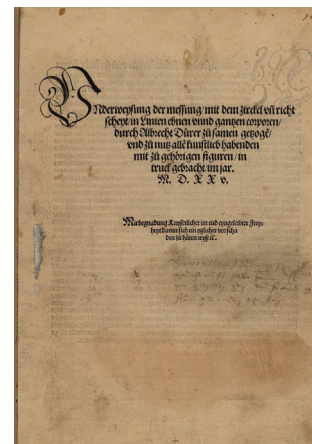 Underweysung der messung/ mit dem zirckel uñ richt
scheyt/ in Linien ebnen unnd gantzen corporen/
durch Albrecht Dürer zů samen getzogẽ/
und zů nutz allẽ kunstlieb habenden
mit zů gehörigen figuren/ in
truck gebracht im jar.
M. D. X X v.
Mit begnadung Kayserlicher im end eyngeleibter Frey-
heyt damit sich ein yglicher vor scha
den zů